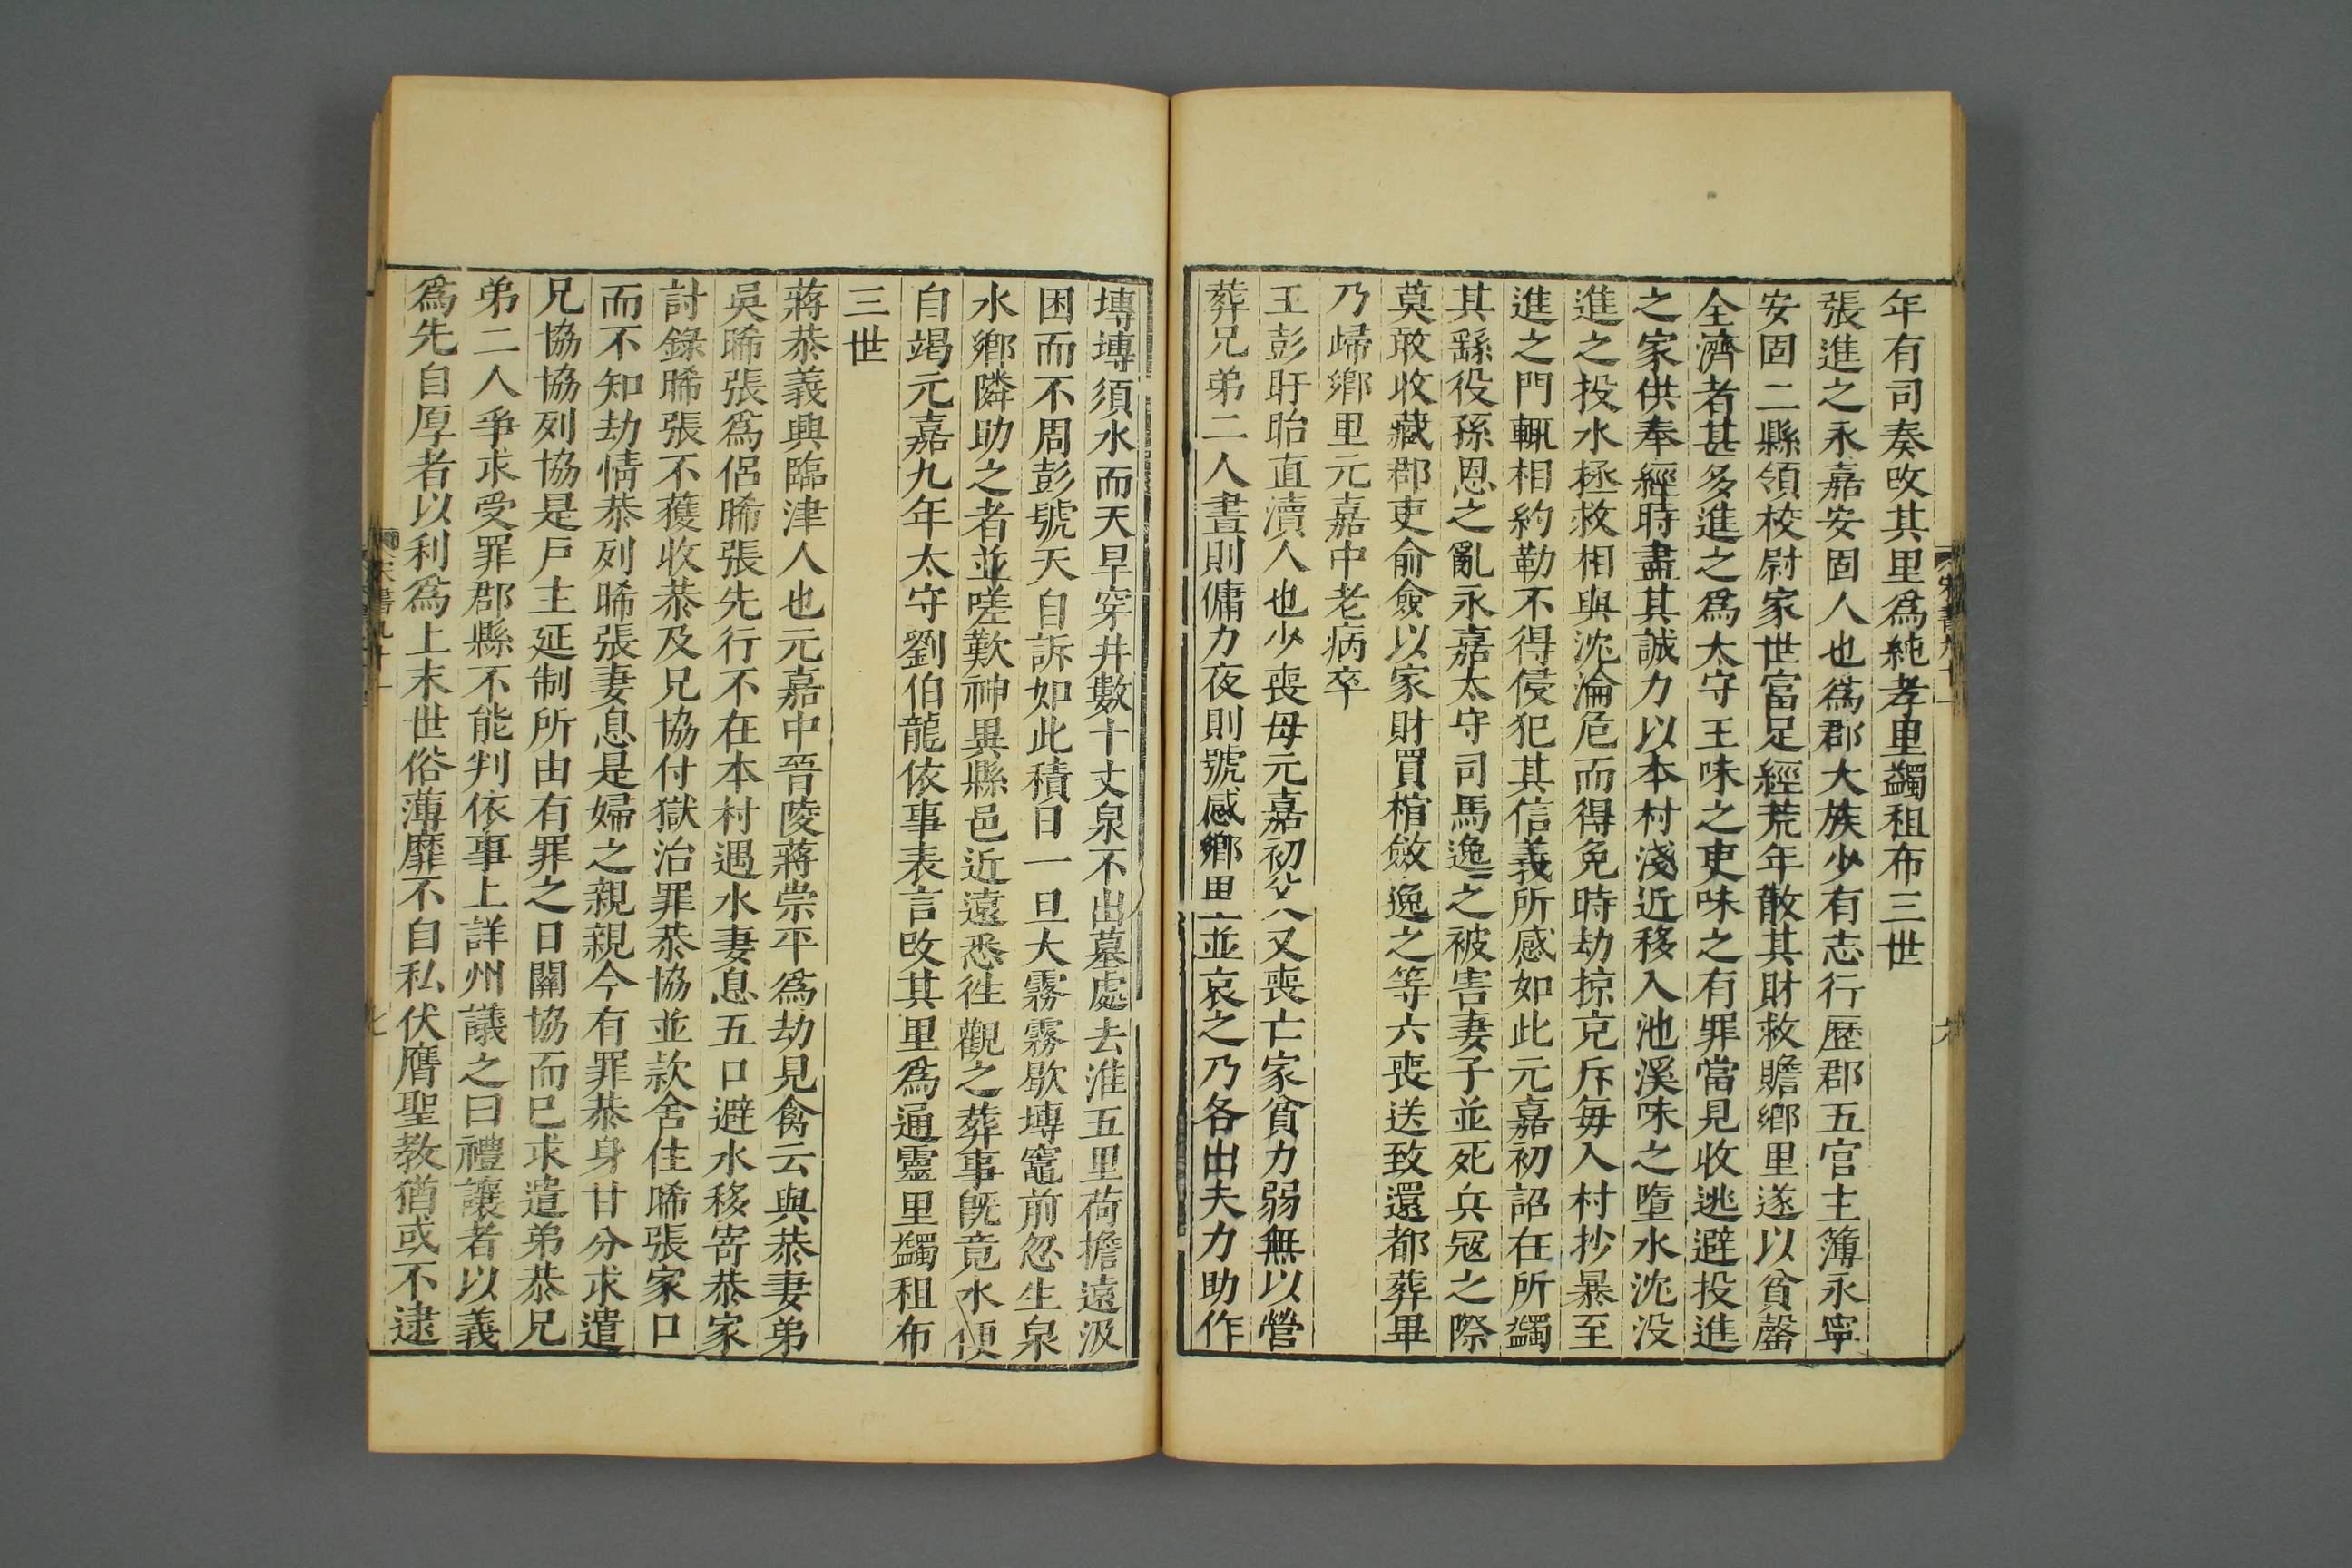 年有司奏改其里爲純孝里蠲租布三世
張進之永嘉安固人也爲郡大族少有志行歷郡五官主簿永寧
安固二縣領校尉家世富足經荒年散其財救贍鄉里遂以貧罄
全濟者甚多進之爲太守王味之吏味之有罪當見收逃避投進
之家供奉經時盡其誠力以本村淺近移入池溪味之墮水沈没
進之投水拯救相與沈淪危而得免時劫掠充斥每入村抄暴至
進之門輒相約勒不得侵犯其信義所感如此元嘉初詔在所蠲
其繇役孫恩之亂永嘉太守司馬逸之被害妻子並死兵冦之際
莫敢收藏郡吏俞僉以家財買棺斂逸之等六喪送致還都葬畢
乃歸鄉里元嘉中老病卒
王彭盱眙直瀆人也少喪母元嘉初父又喪亡家貧力弱無以營
葬兄弟二人晝則傭力夜則號感鄉里並哀之乃各出夫力助作
塼塼須水而天旱穿井數十丈泉不出墓處去淮五里荷擔遠汲
困而不周彭號天自訴如此積日一旦大霧霧歇塼竈前忽生泉
水鄉隣助之者並嗟歎神異縣邑近遠悉徃觀之葬事旣竟水便
自竭元嘉九年太守劉伯龍依事表言改其里爲通靈里蠲租布
三世
蔣恭義興臨津人也元嘉中晉陵蔣崇平爲劫見禽云與恭妻弟
吳晞張爲侶晞張先行不在本村遇水妻息五口避水移寄恭家
討錄晞張不獲收恭及兄協付獄治罪恭協並款舍住晞張家口
而不知劫情恭列晞張妻息是婦之親親今有罪恭身甘分求遣
兄協協列協是戶主延制所由有罪之日關協而已求遣弟恭兄
弟二人爭求受罪郡縣不能判依事上詳州議之曰禮讓者以義
爲先自厚者以利爲上末世俗薄靡不自私伏膺聖教猶或不逮
宋書九十一
七